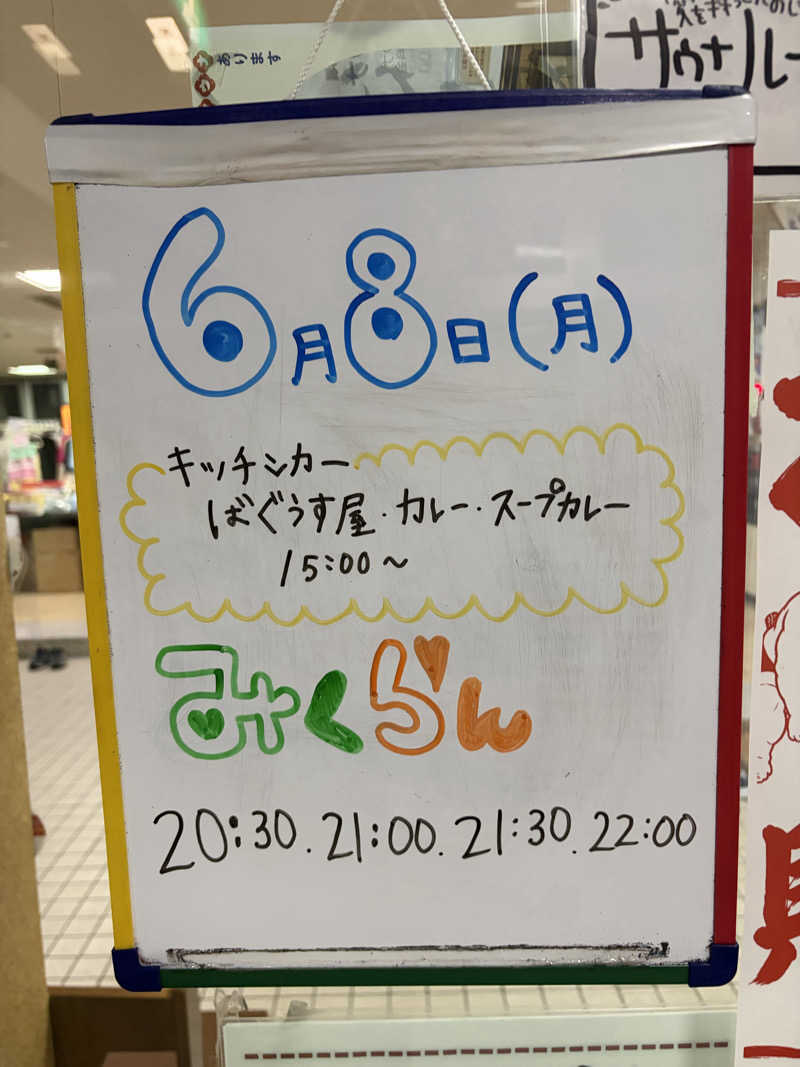 あります
サウナルー
6月8日(月)
キッチンカー
ばぐうす屋・カレー・スープカレー
15:00〜
みくらん
20:30.21:00.21:30.22:00